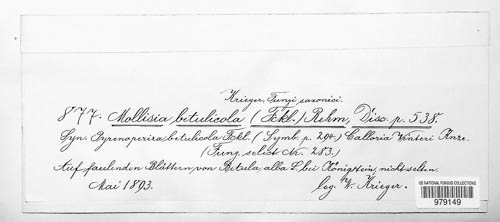 Krieger, Fungi saxonici.
877. Mollisia betulicola (Fckl.) Rehm, Disc. p. 538.
Syn. Pyrenopeziza betulicola Fckl. (Symb. p. 294.) Calloria Winteri Knze.
(Fung. select. Nr. 283.)
Auf faulenden Blättern von Betula alba L. bei Königstein, nicht selten.
Mai 1893. leg. W. Krieger.
US NATIONAL FUNGUS COLLECTIONS
979149